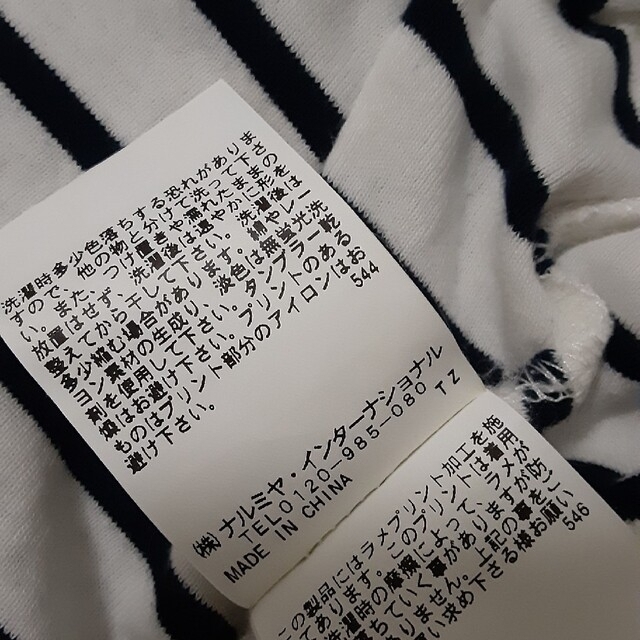 洗濯時多少色落ちする恐れがありま
すので、他の物と分けて洗って下さ
い。また、つけ置きや濡れたままの
放置はせず、洗濯後は速やかに形を
整えてから干して下さい。洗濯後は
多少縮む場合があります。綿やレー
ヨン素材の生成り、淡色は無蛍光洗
剤を使用して下さい。タンブラー乾
燥はお避け下さい。プリントのある
ものはプリント部分のアイロンはお
避け下さい。
544
㈱ナルミヤ・インターナショナル
TEL0120-985-080 TZ
MADE IN CHINA
この製品にはラメプリント加工を施用
してあります。このプリントは着用
洗濯時の摩擦によって、ラメが
落ちていく事がありますが防
ありません。上記の事をご
い求め下さる様お願い
546